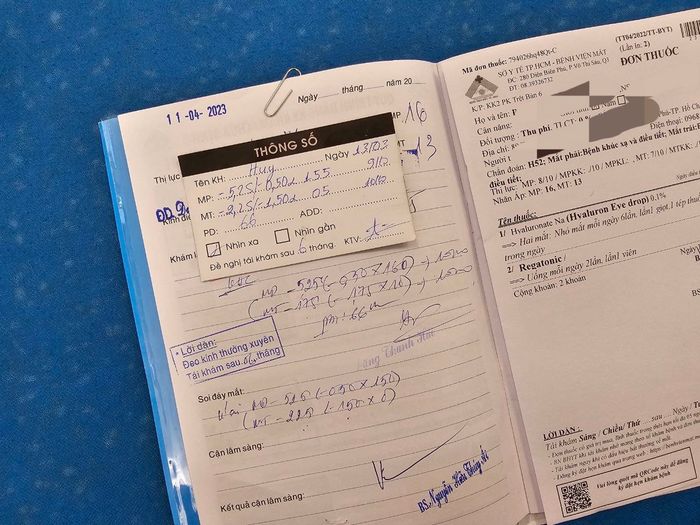 11-04-2023
Ngày tháng năm 20
MP 16
MT 13
Thị lực
THÔNG SỐ
Tên KH: Huy Ngày 13/03
MP: -5,25/-0,50x 155 9/10
MT: -2,25/-1,50x 05 10/10
PD: 66 ADD:
Nhìn xa Nhìn gần
Đề nghị tái khám sau 6 tháng. KTV:
Khám
MP - 525 (-050 x 160) → 10/10
MT - 175 (-175 x 10) → 10/10
* Lời dặn:
Đeo kính thường xuyên
Tái khám sau tháng
Soi đáy mắt:
MP - 525 (-050 x 150)
MT - 225 (-150 x 0)
Cận lâm sàng:
Kết quả cận lâm sàng:
BS. Nguyễn Hữu Thúy Ái
(TT04/2022/TT-BYT)
(Lần in: 2)
Mã đơn thuốc: 794026hq48Qt-C
SỞ Y TẾ TP.HCM - BỆNH VIỆN MẮT
ĐC: 280 Điện Biên Phủ, P Võ Thị Sáu, Q3
ĐT: 08.39326732
ĐƠN THUỐC
K/P: KK2 PK Trệt Bàn 6
Họ và tên:
Nam
Cân nặng:
Đối tượng : Thu phí.
Địa chỉ:
Người
Điện thoại: 0968
Chẩn đoán: H52; Mắt phải:Bệnh khúc xạ và điều tiết; Mắt
điều tiết;
Thị lực: MP: 8/10 / MPKK: ./10 / MPKL: . MT: 7/10 / MTKK:
Nhãn Áp: MP: 16, MT: 13
Tên thuốc:
1/ Hyaluronate Na (Hyaluron Eve drop) 0.1%
=> Hai mắt: Nhỏ mắt mỗi ngày 6lần, lần1 giọt,1 tép
trong ngày
2/ Regatonic /
=> Uống mỗi ngày 2lần, lần1 viên
Cộng khoản: 2 khoản
Ngày
BS
LỜI DẶN:
Tái khám Sáng / Chiều/ Thứ ... sau ... Ngày / Tu
Vui lòng quét mã QRCode này để đăng
ký đặt hẹn khám bệnh